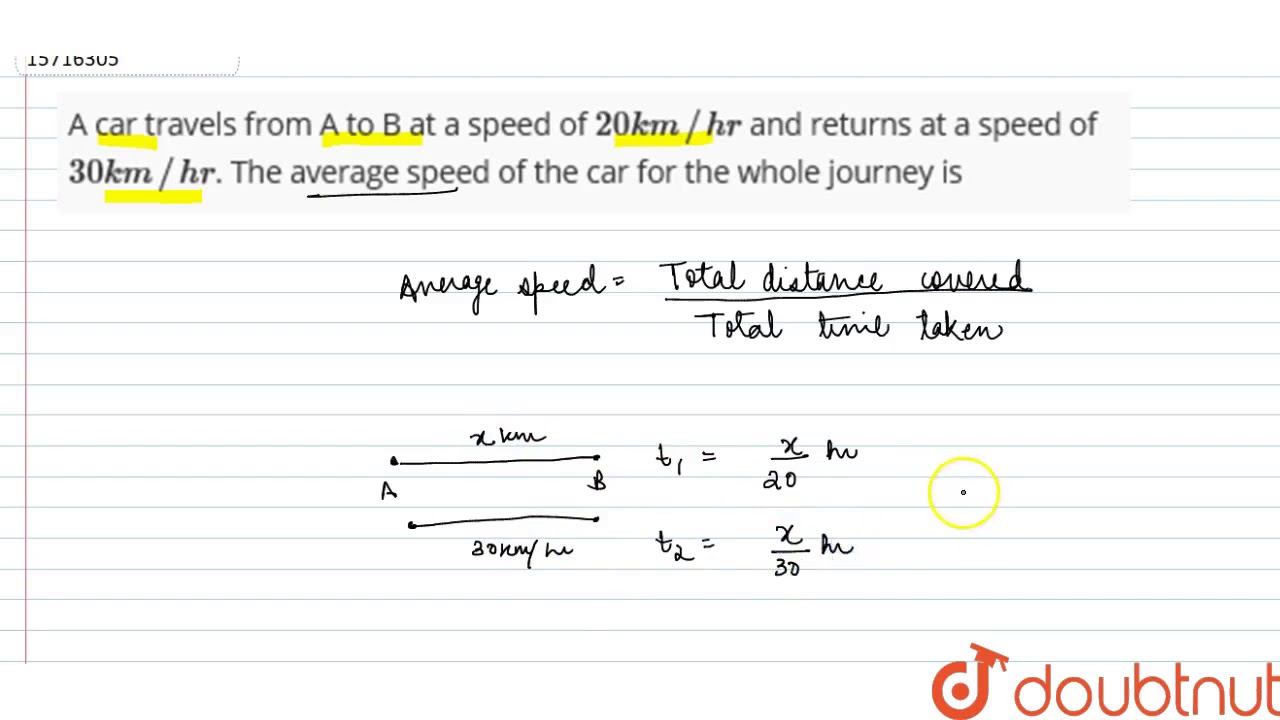 15716305
A car travels from A to B at a speed of 20km/hr and returns at a speed of
30km/hr. The average speed of the car for the whole journey is
Average speed = Total distance covered
Total time taken
x km
A B
t1 = x/20 hr
30km/hr
t2 = x/30 hr
doubtnut